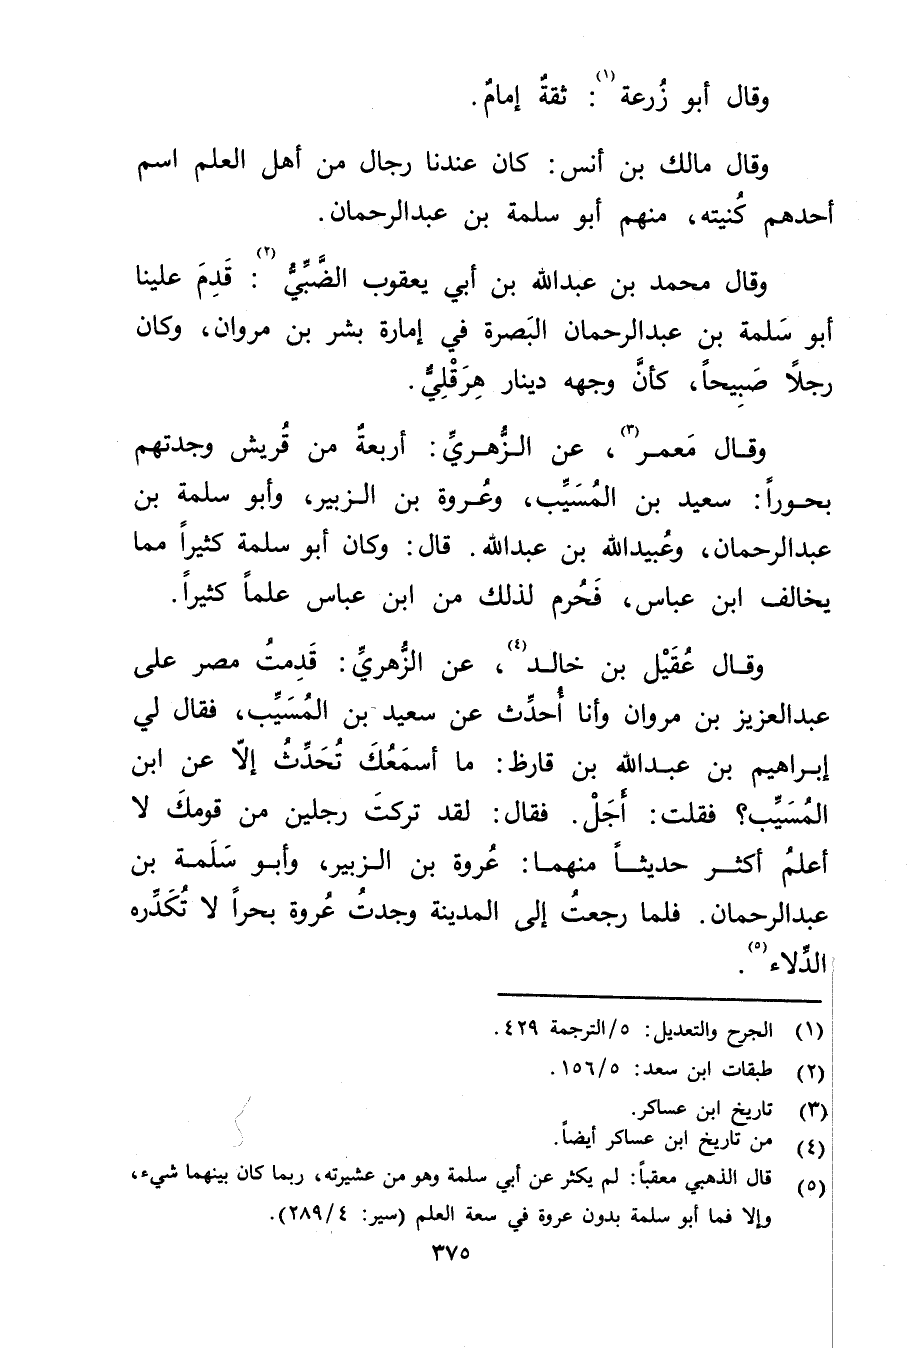 وقال أبو زُرعة(١): ثقةٌ إمامٌ.
وقال مالك بن أنس: كان عندنا رجال من أهل العلم اسم
أحدهم كُنيته، منهم أبو سلمة بن عبدالرحمان.
وقال محمد بن عبدالله بن أبي يعقوب الضَّبِّيُّ(٢): قَدِمَ علينا
أبو سَلمة بن عبدالرحمان البَصرة في إمارة بشر بن مروان، وكان
رجلاً صَبِيحاً، كأنَّ وجهه دينار هِرَقْلِيٌّ.
وقال مَعمر(٣)، عن الزُّهريِّ: أربعةٌ من قُريش وجدتهم
بحوراً: سعيد بن المُسَيِّب، وعُروة بن الزبير، وأبو سلمة بن
عبدالرحمان، وعُبيدالله بن عبدالله. قال: وكان أبو سلمة كثيراً مما
يخالف ابن عباس، فَحُرم لذلك من ابن عباس علماً كثيراً.
وقال عُقَيْل بن خالد(٤)، عن الزُّهريِّ: قَدِمتُ مصر على
عبدالعزيز بن مروان وأنا أُحدِّث عن سعيد بن المُسَيِّب، فقال لي
إبراهيم بن عبدالله بن قارظ: ما أسمَعُكَ تُحَدِّثُ إلاّ عن ابن
المُسَيِّب؟ فقلت: أَجَلْ. فقال: لقد تركتَ رجلين من قومكَ لا
أعلمُ أكثر حديثاً منهما: عُروة بن الزبير، وأبو سَلَمة بن
عبدالرحمان. فلما رجعتُ إلى المدينة وجدتُ عُروة بحراً لا تُكَدِّره
الدِّلاء(٥).
(١) الجرح والتعديل: ٥/الترجمة ٤٢٩.
(٢) طبقات ابن سعد: ١٥٦/٥.
(٣) تاريخ ابن عساكر.
(٤) من تاريخ ابن عساكر أيضاً.
(٥) قال الذهبي معقباً: لم يكثر عن أبي سلمة وهو من عشيرته، ربما كان بينهما شيء،
وإلا فما أبو سلمة بدون عروة في سعة العلم (سير: ٢٨٩/٤).
٣٧٥